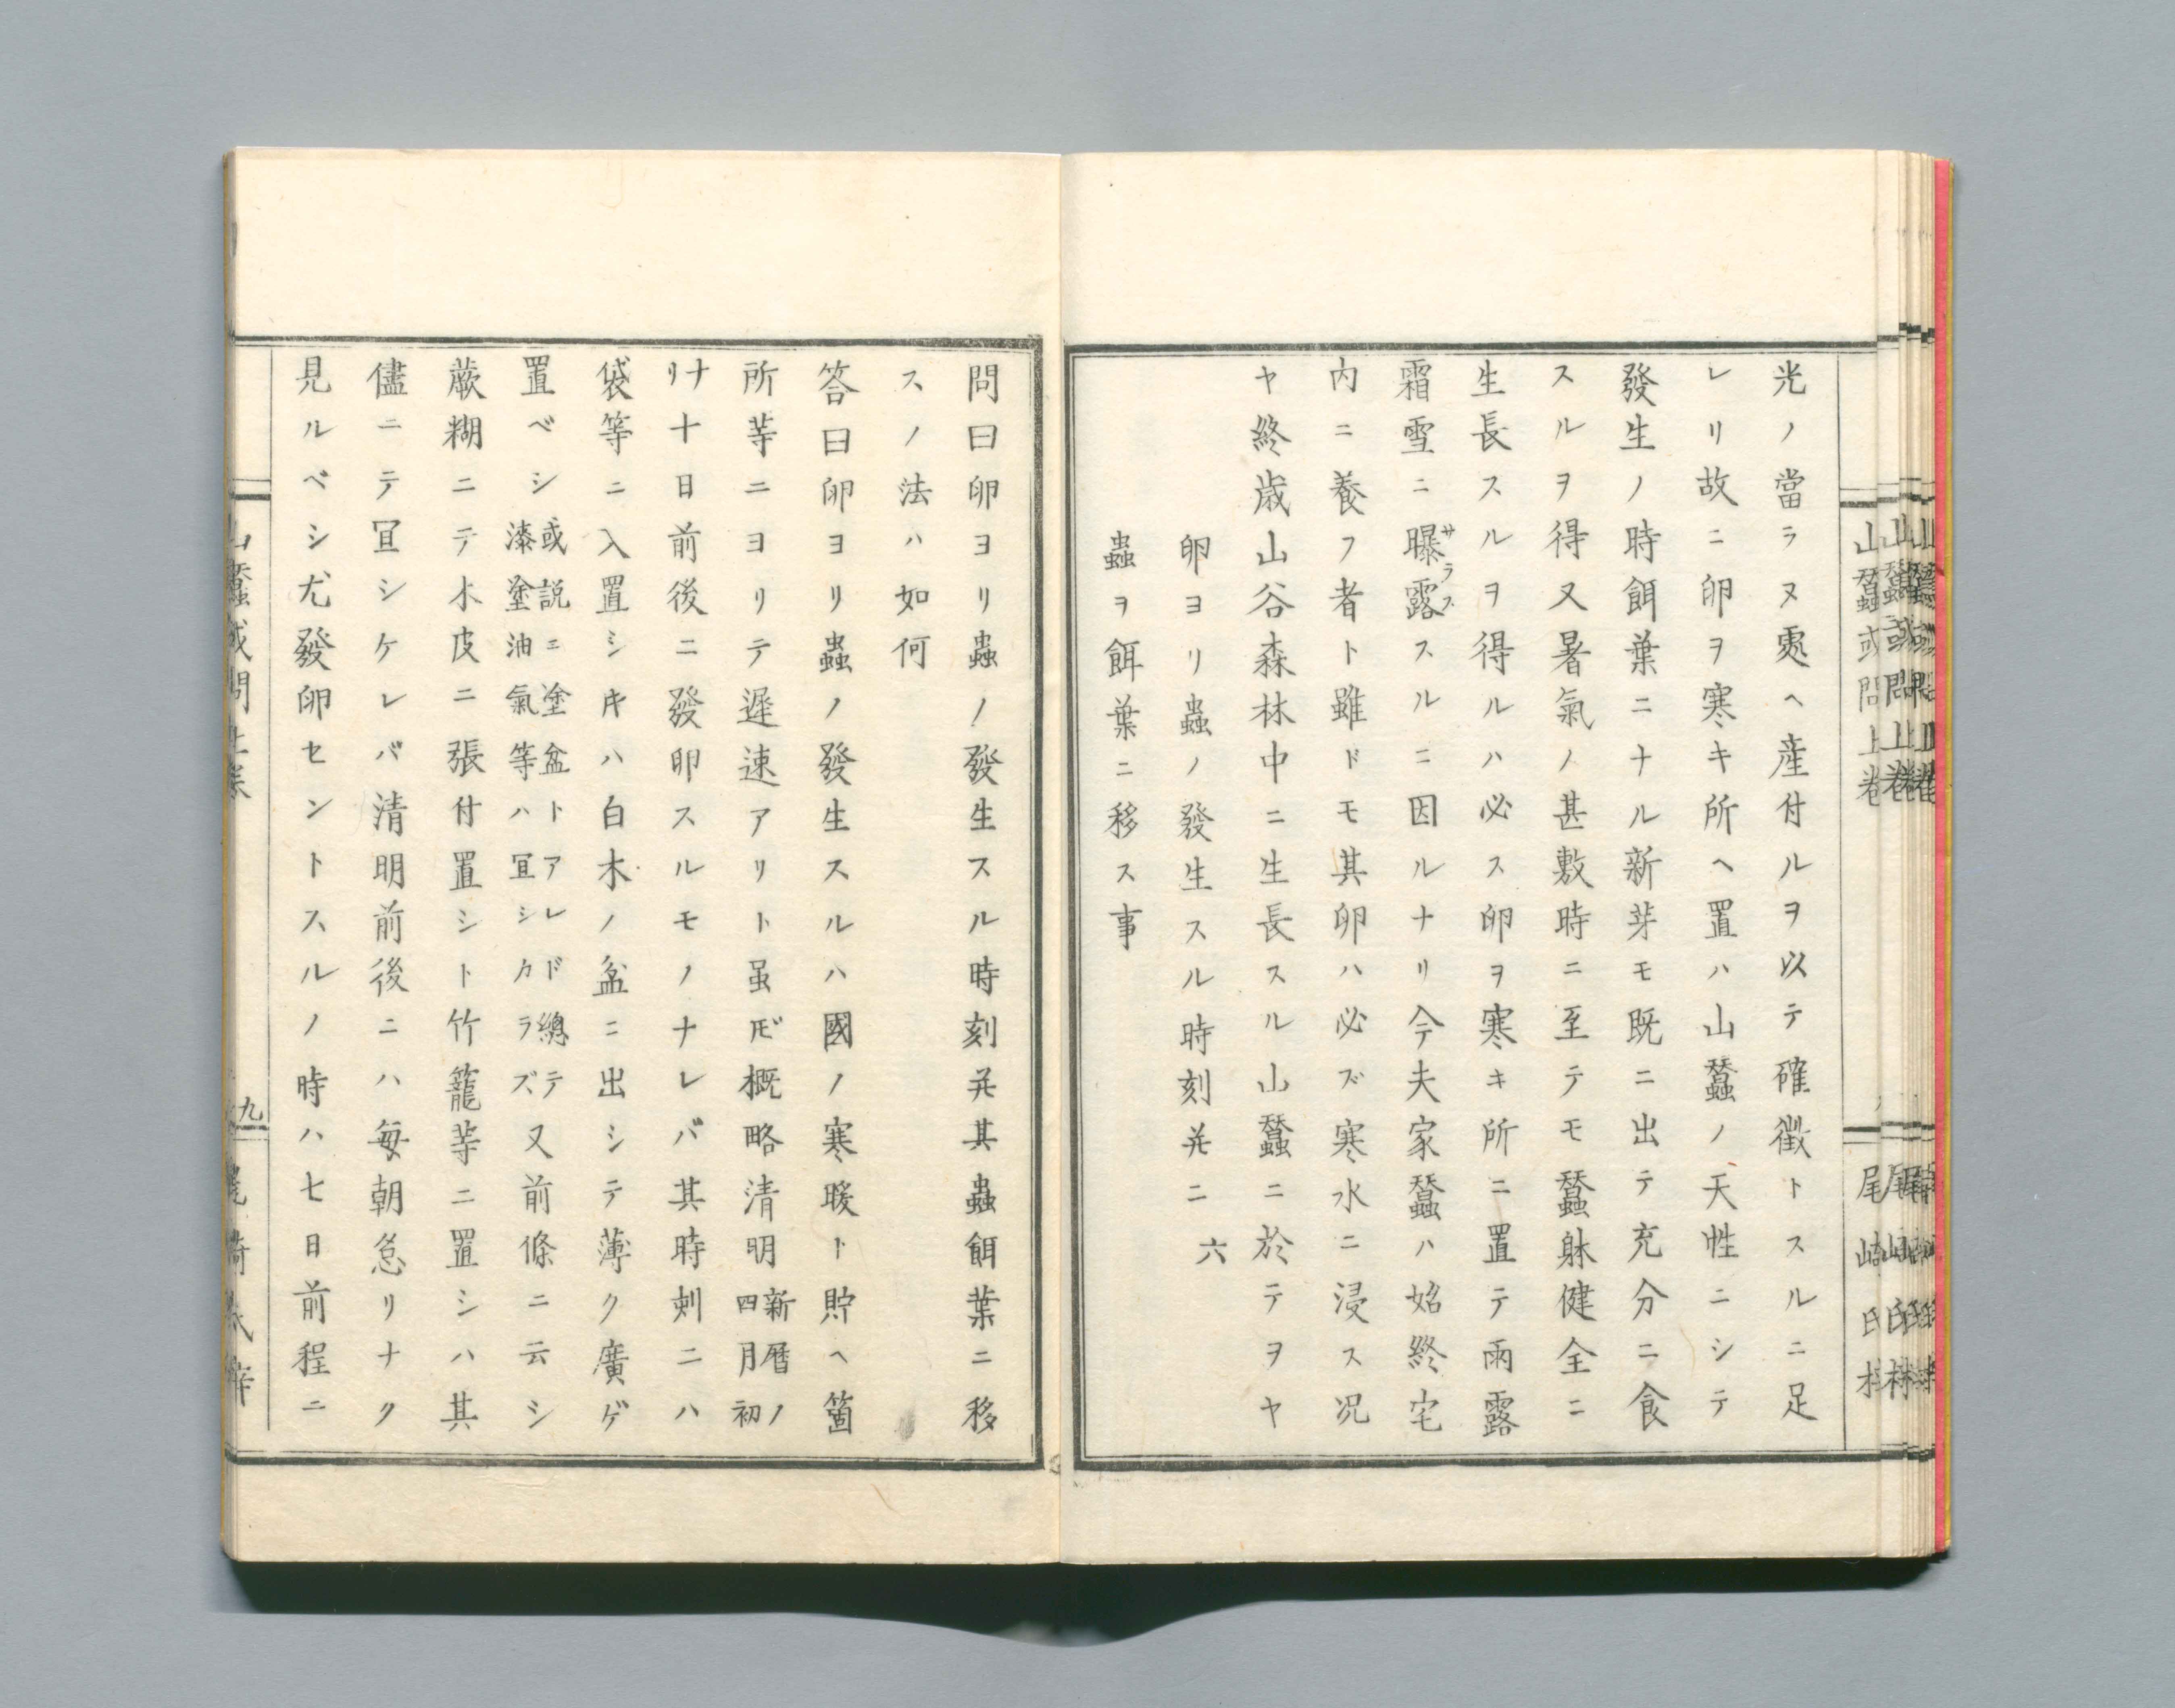 光ノ當ラヌ處ヘ産付ルヲ以テ確徴トスルニ足
レリ故ニ卵ヲ寒キ所ヘ置ハ山蠶ノ天性ニシテ
發生ノ時餌葉ニナル新芽モ既ニ出テ充分ニ食
スルヲ得又暑氣ノ甚敷時ニ至テモ蠶躰健全ニ
生長スルヲ得ルハ必ス卵ヲ寒キ所ニ置テ雨露
霜雪ニ曝露サラススルニ因ルナリ今夫家蠶ハ始終宅
内ニ養フ者ト雖ドモ其卵ハ必ズ寒水ニ浸ス况
ヤ終歳山谷森林中ニ生長スル山蠶ニ於テヲヤ
卵ヨリ蟲ノ發生スル時刻并ニ
六
蟲ヲ餌葉ニ移ス事
問曰卵ヨリ蟲ノ發生スル時刻并其蟲餌葉ニ移
スノ法ハ如何
答曰卵ヨリ蟲ノ發生スルハ國ノ寒暖ト貯ヘ箇
所等ニヨリテ遲速アリト虽𪜈概略清明新暦ノ四月初
リナ十日前後ニ發卵スルモノナレバ其時刺ニハ
袋等ニ入置シキハ白木ノ盆ニ出シテ薄ク廣ゲ
置ベシ或説ニ塗盆トアレドモ總テ漆塗油氣等ハ冝シカラズ又前條ニ云シ
蕨糊ニテ木皮ニ張付置シト竹籠等ニ置シハ其
儘ニテ冝シケレバ清明前後ニハ毎朝怠リナク
見ルベシ尤發卵セントスルノ時ハ七日前程ニ
山蠶或問上巻
九
尾崎氏梓